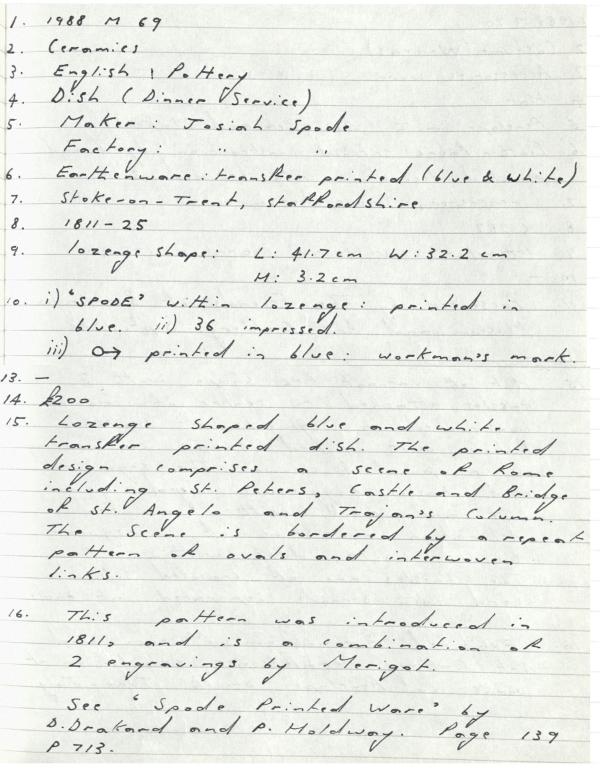 1. 1988 M 69
2. Ceramics
3. English : Pottery
4. Dish (Dinner Service)
5. Maker : Josiah Spode
Factory : " "
6. Earthenware : transfer printed (blue & white)
7. Stoke-on-Trent, Staffordshire
8. 1811-25
9. lozenge shape: L: 41.7cm W: 32.2 cm
H: 3.2cm
10. i) "SPODE" within lozenge: printed in
blue. ii) 36 impressed.
iii) O→ printed in blue: workman's mark.
13. —
14. £200
15. Lozenge shaped blue and white
transfer printed dish. The printed
design comprises a scene of Rome
including St. Peters, Castle and Bridge
of St. Angelo and Trajan's Column.
The scene is bordered by a repeat
pattern of ovals and interwoven
links.
16. This pattern was introduced in
1811, and is a combination of
2 engravings by Merigot.
See 'Spode Printed Ware' by
D. Drakard and P. Holdway. Page 139
P 713.